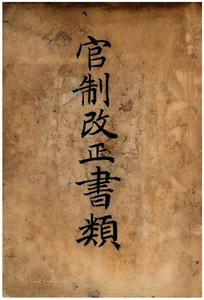 官制改正書類